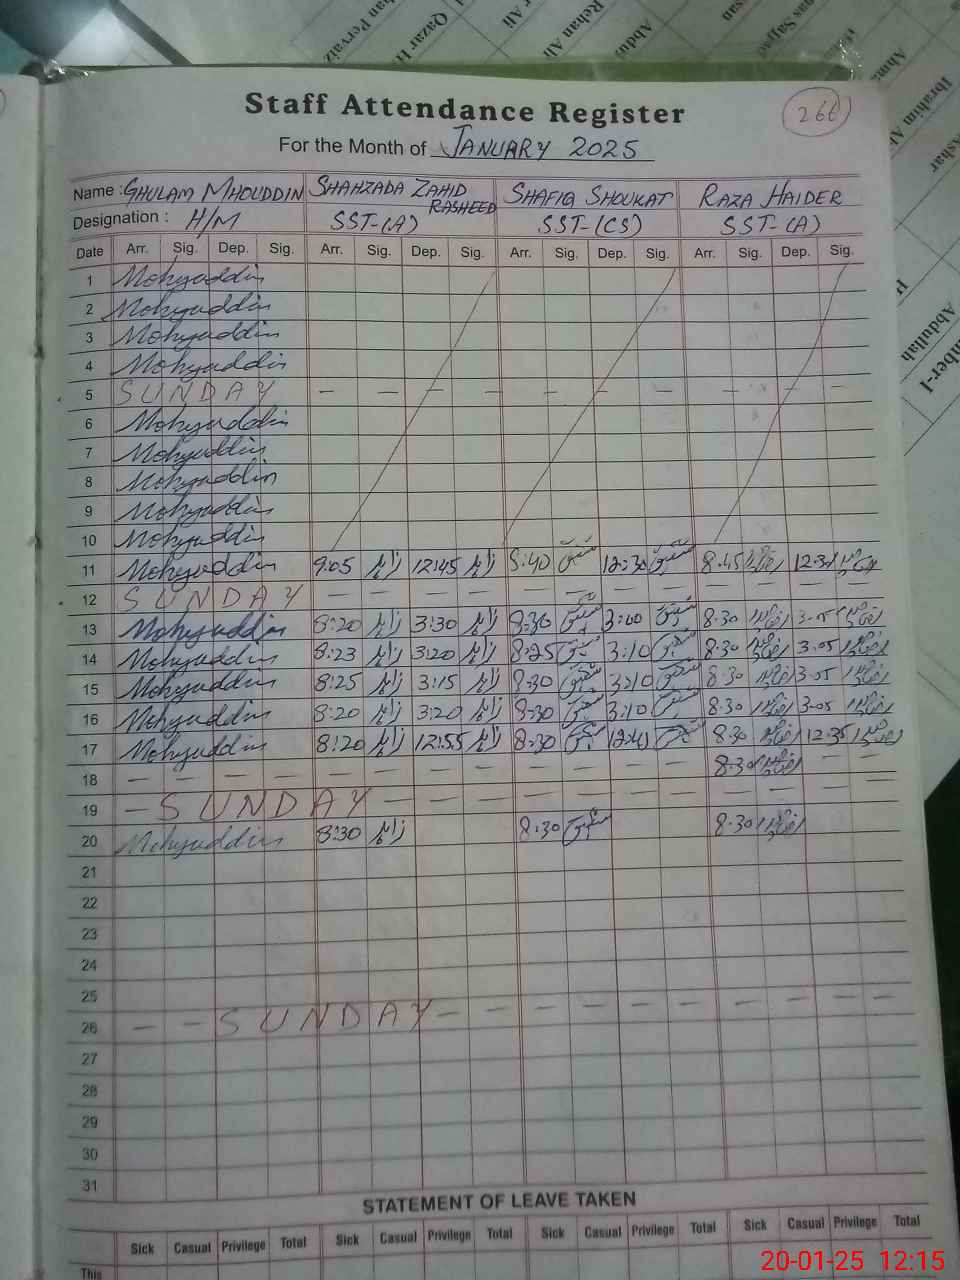 Staff Attendance Register
266
For the Month of JANUARY 2025
Name : GHULAM MHOUDDIN SHAHZADA ZAHID RASHEED SHAFIQ SHOUKAT RAZA HAIDER
Designation : H/M SST-(A) SST-(CS) SST-(A)
Date Arr. Sig. Dep. Sig. Arr. Sig. Dep. Sig. Arr. Sig. Dep. Sig. Arr. Sig. Dep. Sig.
1 Mohyuddin
2 Mohyuddin
3 Mohyuddin
4 Mohyuddin
5 SUNDAY — — — — — — — — — —
6 Mohyuddin
7 Mohyuddin
8 Mohyuddin
9 Mohyuddin
10 Mohyuddin
11 Mohyuddin 9:05 زاہد 12:45 زاہد :40 شفیق 12:30 شفیق 8.45
12 SUNDAY — — — — — — — — — — — —
13 Mohyuddin 8:20 زاہد 3:30 زاہد 8:30 شفیق 3:00 شفیق 8.30 3.05
14 Mohyuddin 8:23 زاہد 3:20 زاہد 8:25 شفیق 3:10 شفیق 8.30 3.05
15 Mohyuddin 8:25 زاہد 3:15 زاہد 8:30 شفیق 3:10 شفیق 8.30 3.05
16 Mohyuddin 8:20 زاہد 3:20 زاہد 8:30 شفیق 3:10 شفیق 8.30 3.05
17 Mohyuddin 8:20 زاہد 12:55 زاہد 8:30 شفیق 12:40 شفیق 8.30 12.35
18 — — — — — — — — — — — — 8.30 — —
19 — SUNDAY — — — — — — — — — — —
20 Mohyuddin 8:30 زاہد 8:30 شفیق 8.30
21
22
23
24
25
26 — — SUNDAY — — — — — — — — — —
27
28
29
30
31
STATEMENT OF LEAVE TAKEN
Sick Casual Privilege Total Sick Casual Privilege Total Sick Casual Privilege Total Sick Casual Privilege Total
This
20-01-25 12:15